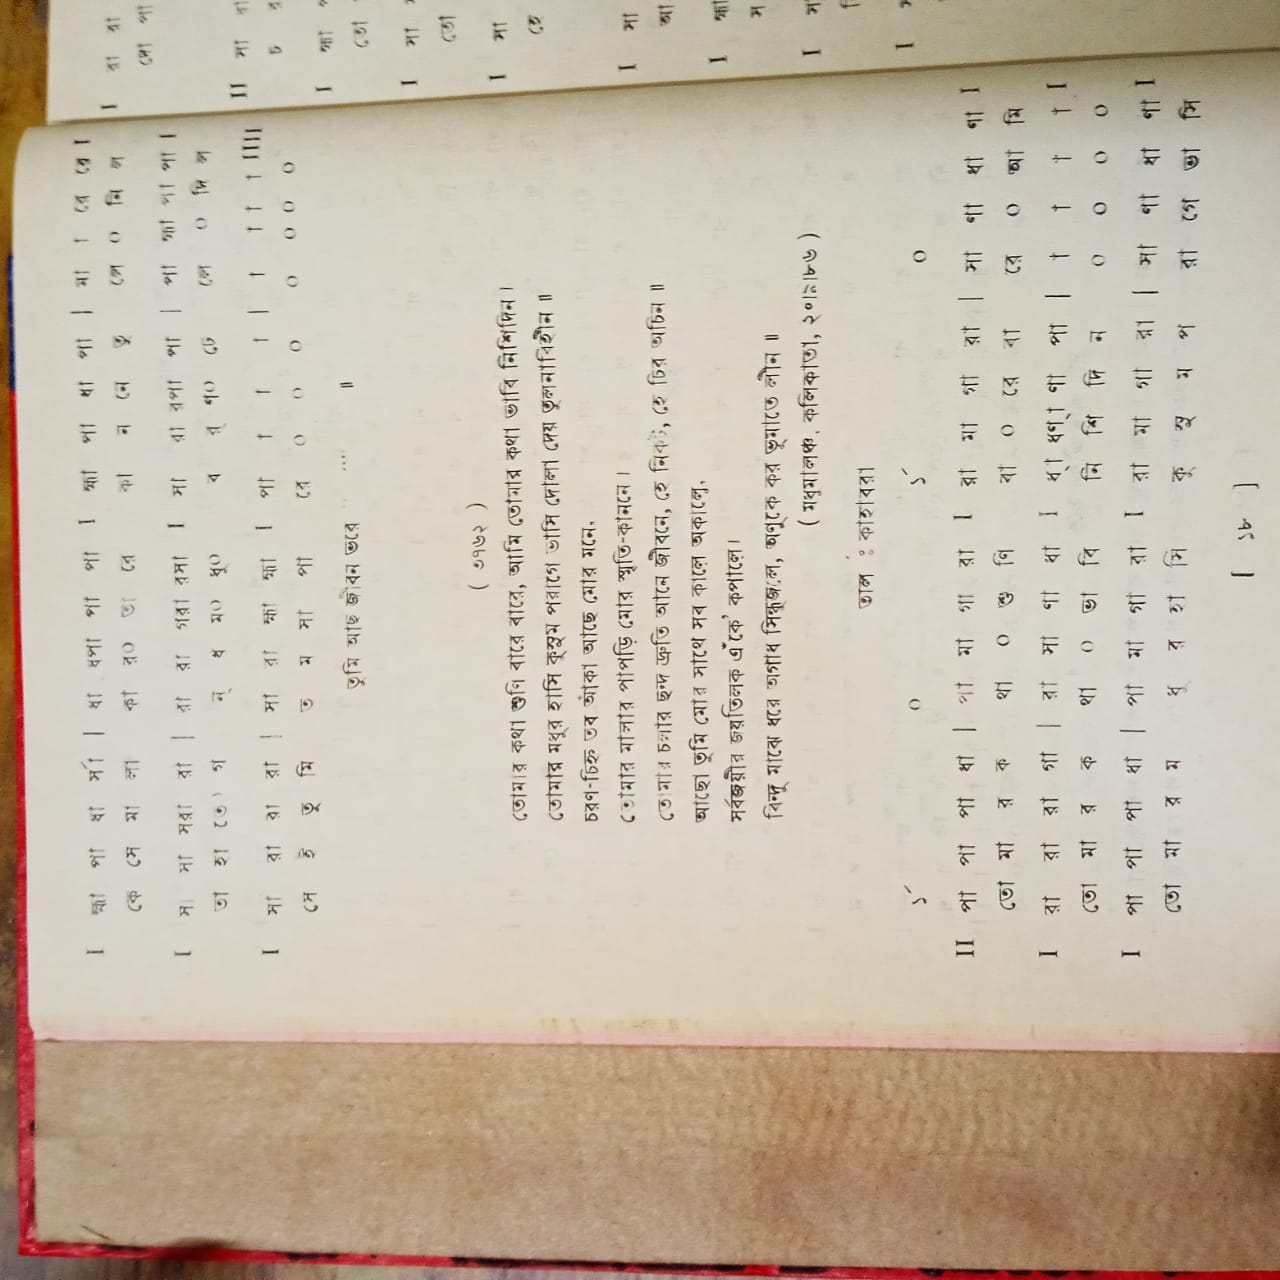 I হ্মা পা ধা র্সা | ধা ধপা পা পা I হ্মা পা ধা পা | মা া রে রে I
কে সে মা লা কা র০ তা রে কা ন নে ভু লে ০ নি ল
I সা সা সরা রা | রা রা গরা রসা I সা রা রপা পা | পা হ্মা পা পা I
তা হা তে০ গ ন্ ধ ম০ ধু০ ব র্ ণ০ ঢে লে ০ দি ল
I সা রা রা রা | সা রা হ্মা হ্মা I পা া া া | া া া া IIII
সে ই তু মি ত ম সা পা রে ০ ০ ০ ০ ০ ০ ০
তুমি আছ জীবন ভরে .... ॥
( ৩৭৬২ )
তোমার কথা শুনি বারে বারে, আমি তোমার কথা ভাবি নিশিদিন।
তোমার মধুর হাসি কুসুম পরাগে ভাসি দোলা দেয় তুলনাবিহীন ॥
চরণ-চিহ্ন তব আঁকা আছে মোর মনে,
তোমার মালার পাপড়ি মোর স্মৃতি-কাননে।
তোমার চলার ছন্দ দ্রুতি আনে জীবনে, হে নিকট, হে চির অচিন ॥
আছো তুমি মোর সাথে সব কালে অকালে,
সর্বজয়ীর জয়তিলক এঁকে' কপালে।
বিন্দু মাঝে ধরে অগাধ সিন্ধুজলে, অণুকে কর ভূমাতে লীন ॥
( মধুমালঞ্চ, কলিকাতা, ২০।৯।৮৬ )
তাল : কাহারবা
১´ ০ ১´ ০
II পা পা পা ধা | পা মা গা রা I রা মা গা রা | সা ণা ধা ণা I
তো মা র ক থা ০ শু নি বা ০ রে বা রে ০ আ মি
I রা রা রা গা | রা সা ণা ধা I ধ্া ধ্ণ্া ণা পা | া া া া I
তো মা র ক থা ০ ভা বি নি শি দি ন ০ ০ ০ ০
I পা পা পা ধা | পা মা গা রা I রা মা গা রা | সা ণা ধা ণা I
তো মা র ম ধু র হা সি কু সু ম প রা গে ভা সি
[ ১৮ ]